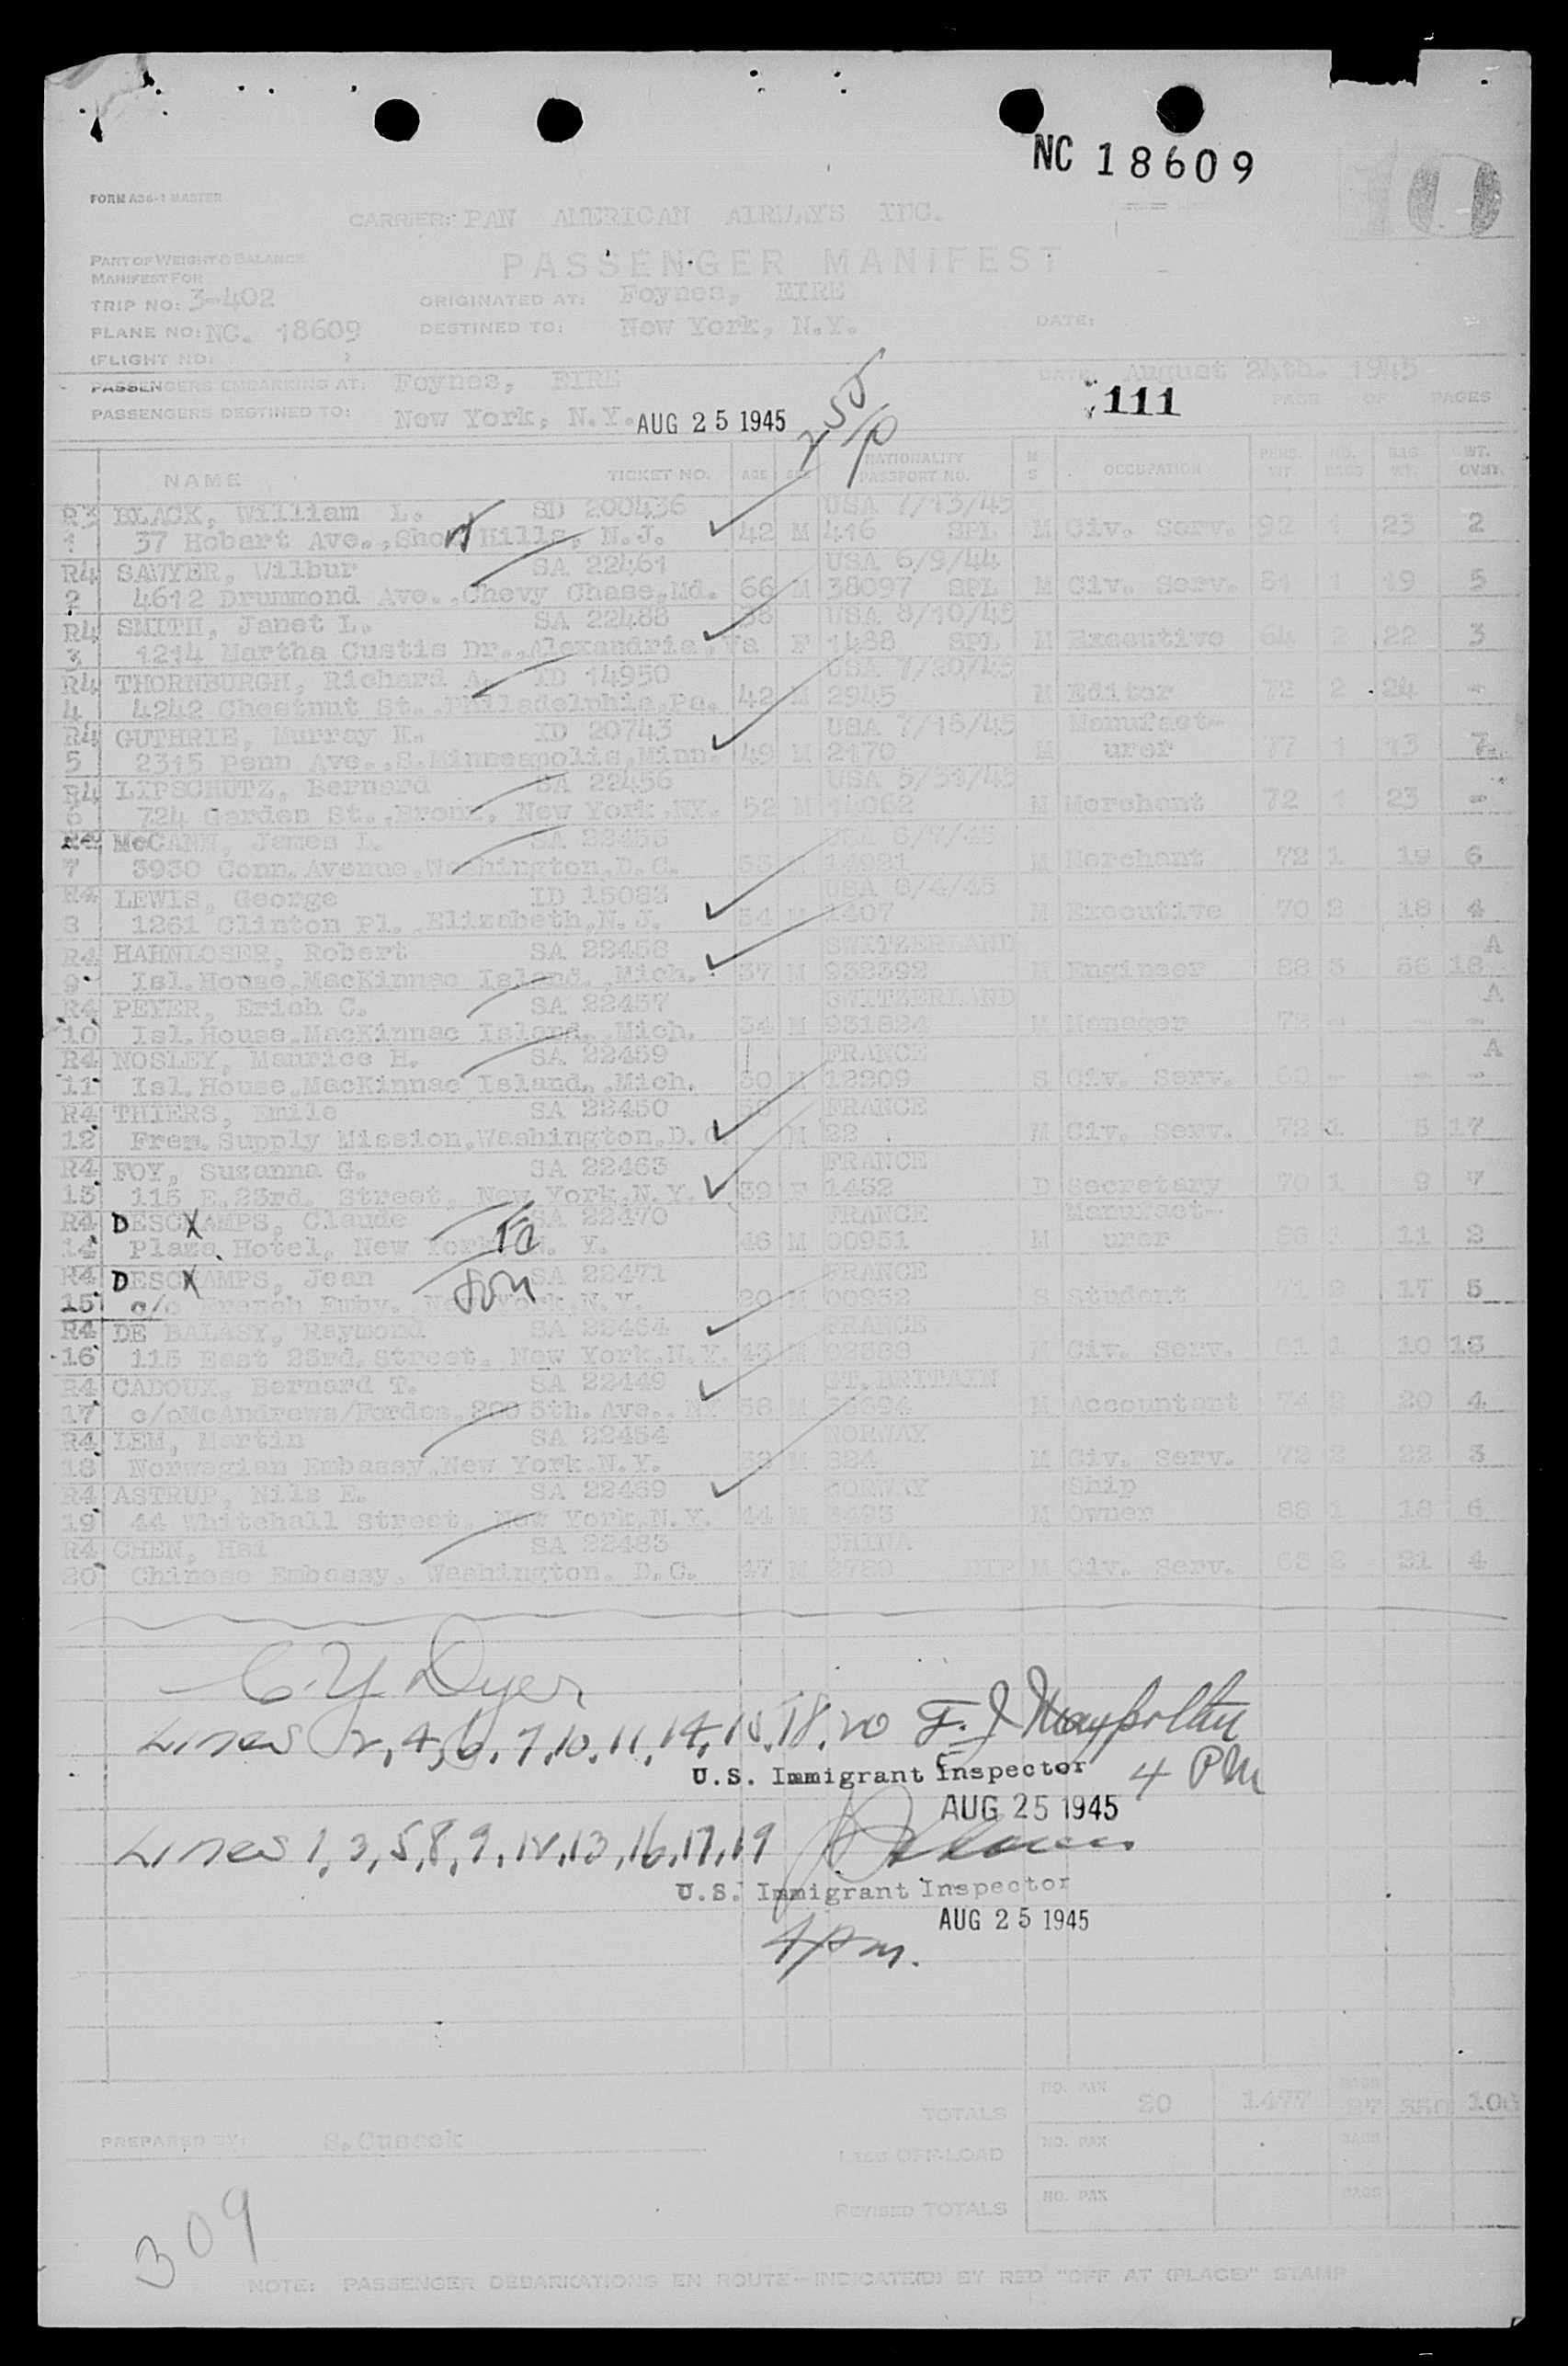 NC 18609
10
FORM A36-1 MASTER
CARRIER: PAN AMERICAN AIRWAYS INC.
PART OF WEIGHT & BALANCE
MANIFEST FOR
PASSENGER MANIFEST
TRIP NO: 3-402 ORIGINATED AT: Foynes, EIRE
PLANE NO: NC. 18609 DESTINED TO: New York, N.Y. DATE:
(FLIGHT NO: )
PASSENGERS EMBARKING AT: Foynes, EIRE DATE: August 24th. 1945
111 PAGE OF PAGES
PASSENGERS DESTINED TO: New York, N.Y. AUG 25 1945
NAME TICKET NO. AGE SEX NATIONALITY PASSPORT NO. M S OCCUPATION PERS. WT. NO. BAGS BAG WT. WT. OVWT.
R3 BLACK, William L. SD 200436 USA 7/13/45
1 37 Hobart Ave., Short Hills, N.J. 42 M 416 SPL M Civ. Serv. 92 1 23 2
R4 SAWYER, Wilbur SA 22461 USA 6/9/44
2 4612 Drummond Ave., Chevy Chase, Md. 66 M 38097 SPL M Civ. Serv. 81 1 19 5
R4 SMITH, Janet L. SA 22488 38 USA 8/10/45
3 1214 Martha Custis Dr., Alexandria, Va F 1488 SPL M Executive 64 2 22 3
R4 THORNBURGH, Richard A. ID 14950 USA 7/20/45
4 4242 Chestnut St., Philadelphia, Pa. 42 M 2945 M Editor 72 2 24 -
R4 GUTHRIE, Murray K. ID 20743 USA 7/16/45 Manufact-
5 2315 Penn Ave., S. Minneapolis, Minn. 49 M 2170 M urer 77 1 13 7
R4 LIPSCHUTZ, Bernard SA 22456 USA 5/31/45
6 724 Garden St., Bronx, New York, NY. 52 M 14062 M Merchant 72 1 23 -
McCANN, James L. SA 22455 USA 6/7/45
7 3930 Conn. Avenue, Washington, D.C. 53 14921 M Merchant 72 1 19 6
R4 LEWIS, George ID 15083 USA 6/4/45
8 1261 Clinton Pl., Elizabeth, N.J. 54 M 1407 M Executive 70 2 18 4
R4 HAHNLOSER, Robert SA 22458 SWITZERLAND A
9 Isl. House, MacKinnac Island., Mich. 37 M 932392 M Engineer 88 3 56 18
R4 PEYER, Erich C. SA 22457 SWITZERLAND A
10 Isl. House, MacKinnac Island., Mich. 34 M 931824 M Manager 72 - - -
R4 NOSLEY, Maurice H. SA 22459 FRANCE A
11 Isl. House, MacKinnac Island., Mich. 30 M 12209 S Civ. Serv. 60 - - -
R4 THIERS, Emile SA 22450 38 FRANCE
12 Fren. Supply Mission, Washington, D.C. M 22 M Civ. Serv. 72 1 5 17
R4 FOY, Suzanna G. SA 22463 FRANCE
13 115 E. 23rd. Street, New York, N.Y. 39 F 1452 D Secretary 70 1 9 7
R4 DESCXAMPS, Claude SA 22470 FRANCE Manufact-
14 Plaza Hotel, New York, N. Y. Fa 46 M 00951 M urer 86 1 11 2
R4 DESCXAMPS, Jean SA 22471 FRANCE
15 c/o French Emby., New York, N.Y. son 20 M 00952 S Student 71 2 17 5
R4 DE BALASY, Raymond SA 22464 FRANCE
16 115 East 23rd. Street, New York, N.Y. 45 M 02388 M Civ. Serv. 61 1 10 13
R4 CADOUX, Bernard T. SA 22449 GT. BRITAIN
17 c/o McAndrews/Fordes, 200 5th. Ave., NY 58 M M Accountant 74 2 20 4
R4 LEM, Martin SA 22454 NORWAY
18 Norwegian Embassy, New York, N.Y. 39 M 824 M Civ. Serv. 72 2 22 3
R4 ASTRUP, Nils E. SA 22469 NORWAY Ship
19 44 Whitehall Street, New York, N.Y. 44 M M Owner 88 1 18 6
R4 CHEN, Hsi SA 22483 CHINA
20 Chinese Embassy, Washington, D.C. 47 M DIP M Civ. Serv. 63 2 21 4
C. Y. Dyer
Lines 2, 4, 6, 7, 10, 11, 14, 15, 18, 20 F. J.
U.S. Immigrant Inspector 4 PM
AUG 25 1945
Lines 1, 3, 5, 8, 9, 12, 13, 16, 17, 19
U.S. Immigrant Inspector
AUG 25 1945
4 pm.
TOTALS NO. PAX 20 1477 BAGS 27 106
PREPARED BY: S. Cussck
LESS OFF-LOAD NO. PAX BAGS
REVISED TOTALS NO. PAX BAGS
309
NOTE: PASSENGER DEBARKATIONS EN ROUTE—INDICATE(D) BY RED "OFF AT (PLACE)" STAMP